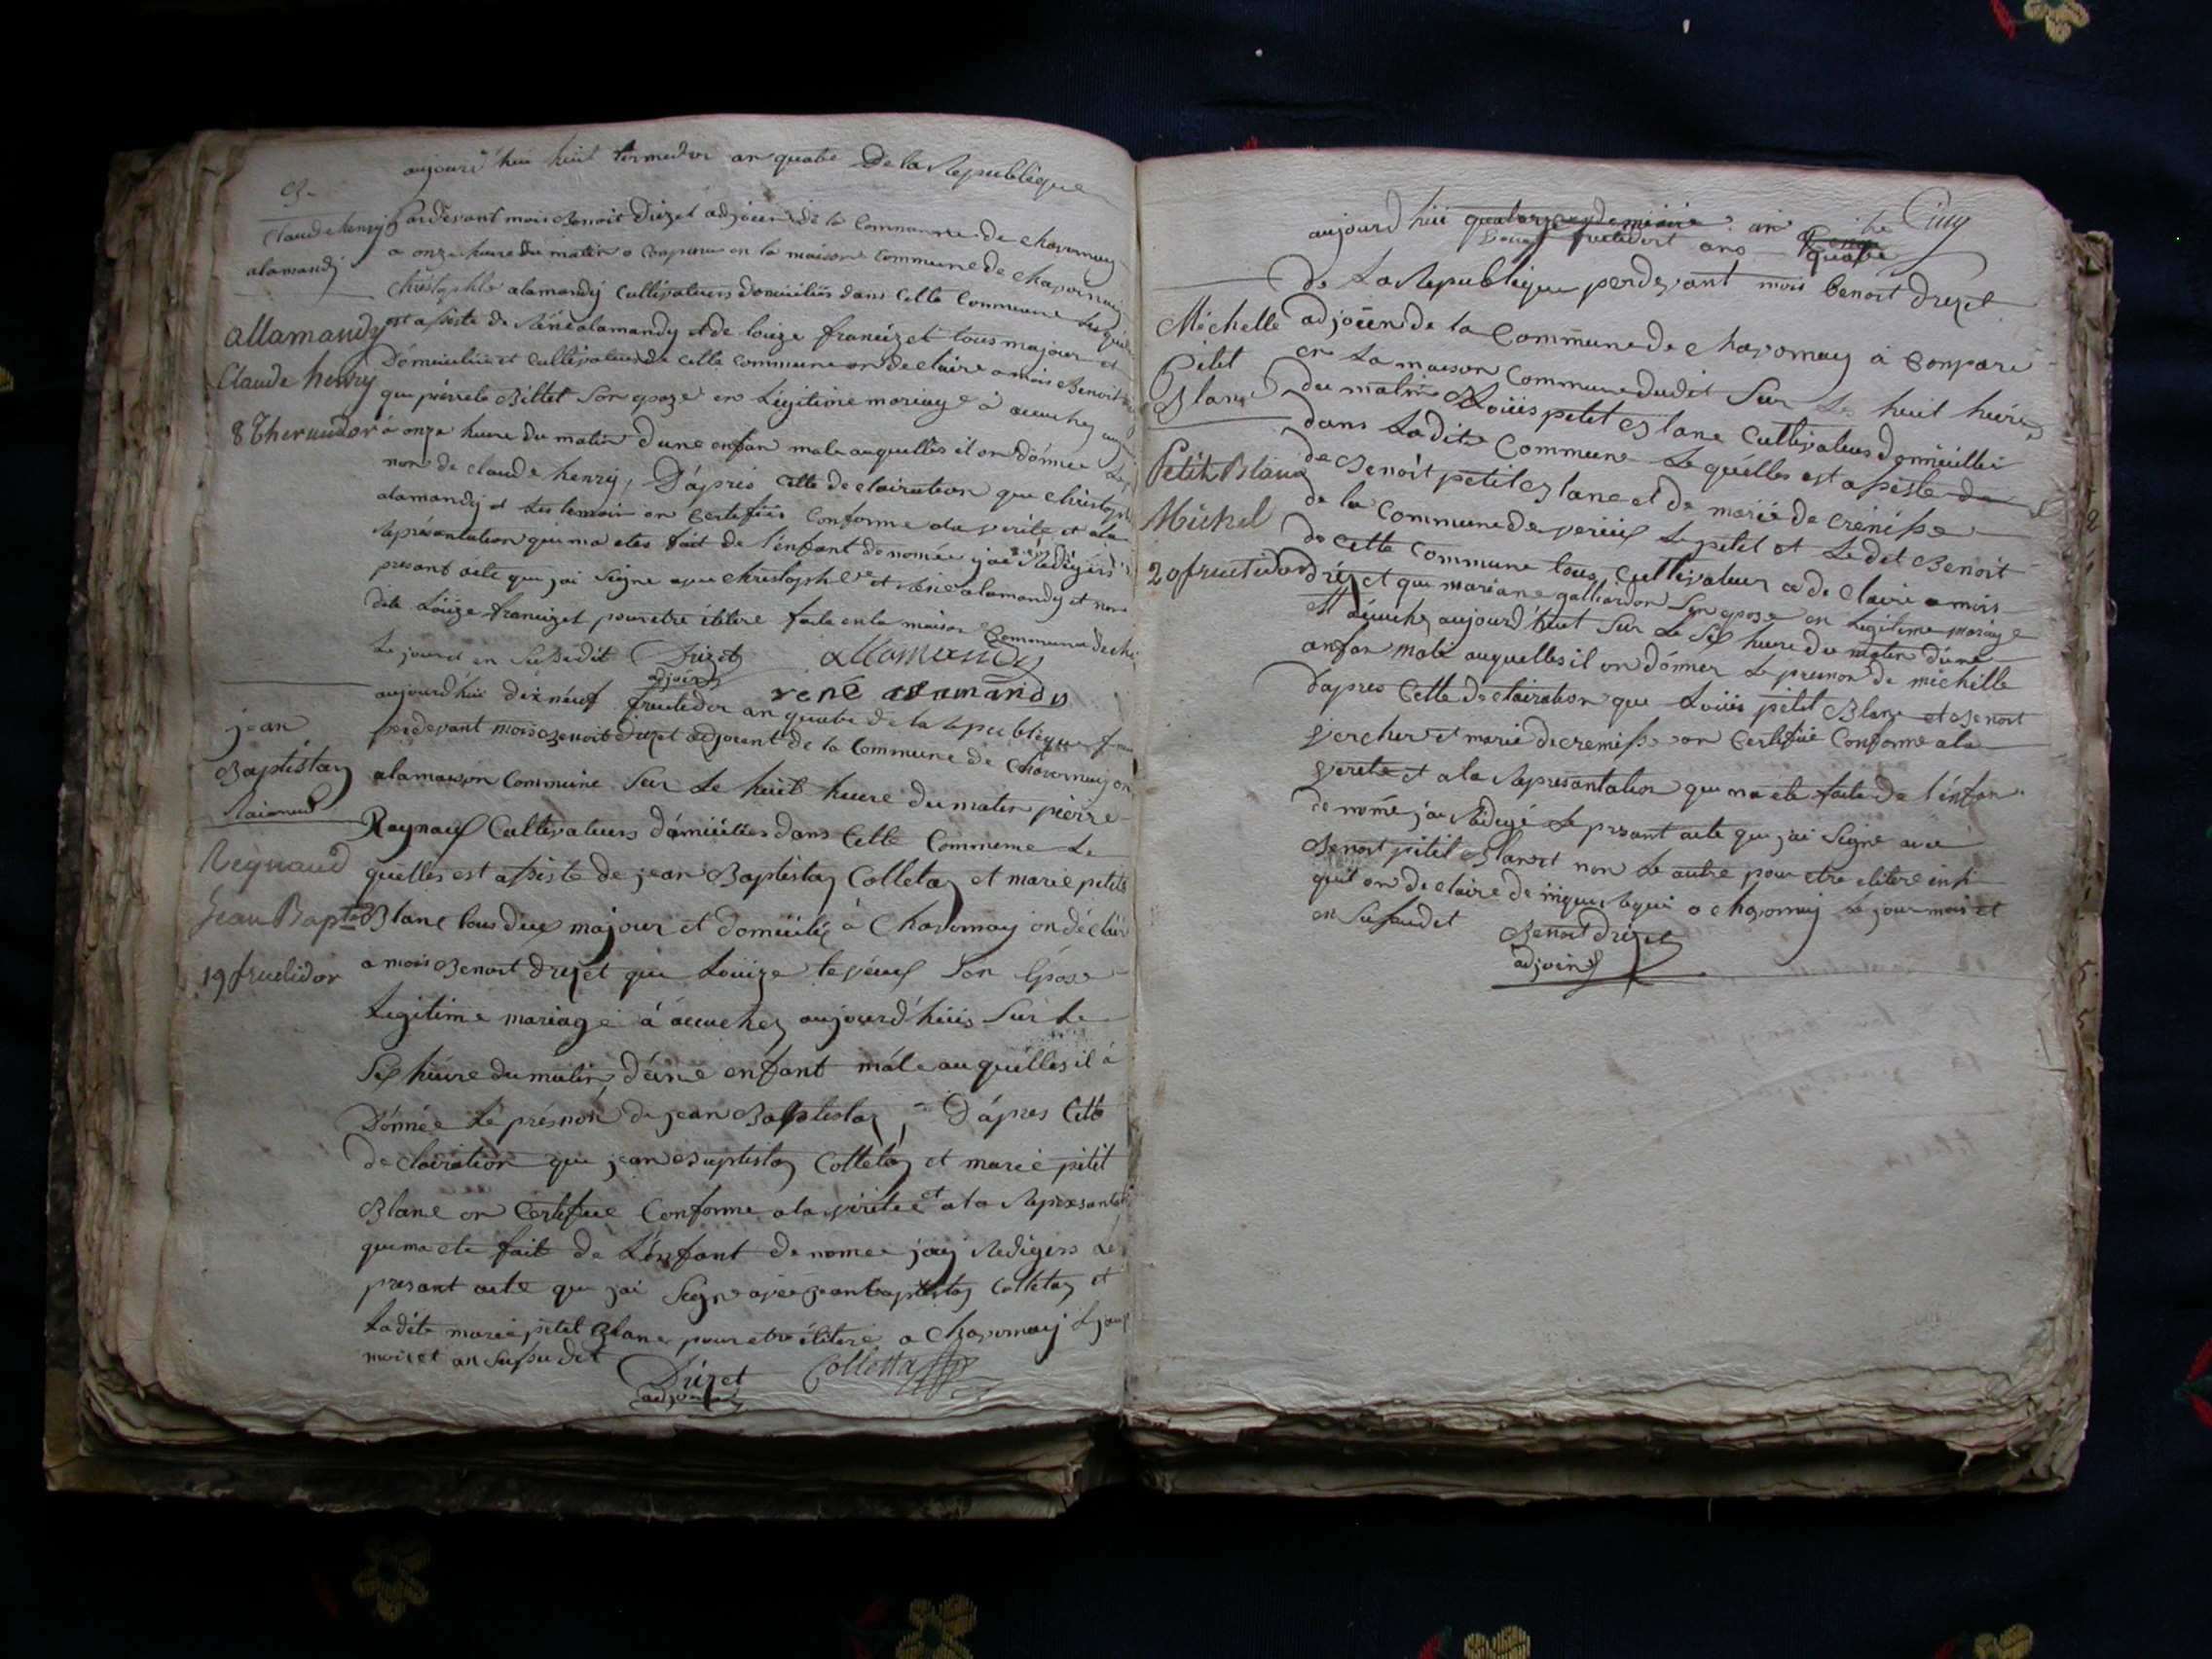 aujourd'hui huit termedor an quatre De la Republique
Claude henrij pardevant mois Benoit Drizet adjoien de la Commune de chavornay
alamandj
a onze heure du matin a Conparu en la maison Commune de chavornay
Christophle alamandij Cultivateurs domiciliés dans Cette Commune
est assiste de René alamandy et de louize francizet tous majour et
allamandy
Domicilié et Cultivateur de cette commune on declaire a mois Benoit
Claude henry
que pierrete Billet Son epoze en Legitime mariage à acuchez
8 Thermidor
à onze heure du matin d'une enfan male auquelles il on donnee Le
non de Claude henry, D'apres Cette declairation que Christophe
alamandij et Les temoin on Certifies Conforme ala verite et ala
Representation qui ma etes fait de l'enfant denomée j'ai Rédigers
presant acte que jai Signe avec Christophle et René alamandy et non
dite Loüize francizet pour etre élitere faite en la maison Commune de
Le jour et an Susdit Drizet allamandy
adjoin
rené alamandy
aujourd'hui dix neuf frutidor an quatre de la republique
jean
Baptistaz
Raionaud
perdevant mois Benoit Drizet adjoient de la Commune de Chavornay
a la maison Commune Sur Le huit heure du matin pierre
Raynaud Cultivateurs domiciliés dans Cette Commune Le
Reynaud
Jean Bapte
19 fructidor
quelles est assiste de jean Baptistaz Colletaz et marie petit
Blanc tous deux majour et domicilié à Chavornay on déclair
a mois Benoit drizet que Louize teveux Son Epose
Legitime mariage à acuchez aujourd'huis Sur Le
Six heure du matin, d'une enfant mále auquelles il à
Donnée Le prénon de jean Baptistaz, D'ápres Cette
declairation que jean Baptistaz Colletaz et marie petit
Blanc on Certifiée Conforme ala veritée et ala Represantat
qui ma ete fait de L'enfant denomee jay Redigers Le
presant acte que jai Signe avec jean baptistaz Colletaz et
Ladite marie petit Blanc pour etre élitere a Chavornay L jour
mois et an Susdit
Drizet Colletta
adjoin
Cinq
aujourd hui
frutidor ans quatre
de La Republique perdevant mois Benoit Drizet
Michelle
Petit
Blanc
adjoien de la Commune de Chavornay à Conparu
en La maison Commune dudit Sur Les huit heure
du matin Loüis petit Blanc Cultivateur domicillié
dans Ladite Commune Le quelles est assiste de
Petit Blanc
Michel
20 fructidor
de Benoit petit Blanc et de marie de crémisse
de la Commune de verieux Le petit et Ledit Benoit
de Cette Commune tous Cultivateur a declaire a mois
drizet que mariane galliardon Son epose en Legitime mariage
acuchez aujourd'huit Sur Le Six heure du matin d'une
anfan male auquelles il on dónner Le prenon de michelle
D'apres Cette declairation que Loüis petit Blanc et Benoit
vercher et marie de cremisse on Certifié Conforme a la
verite et a la Represantation qui ma ete faite de l'énfan
denomé j'ai Redigé Le presant acte que jai Signe avec
Benoit petit Blanc et non Le autre pour etre elitere
quil on declaire de a Chavornay Le jour mois et
an Susdit
Benoit drizet
adjoin